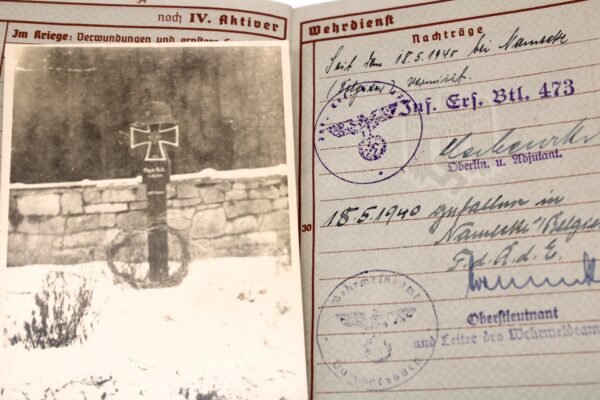 34
noch IV. Aktiver
Im Kriege: Verwundungen und ernstere
Wehrdienst
Nachträge
Seit dem 18.5.1940 bei Namecke
(Belgien) vermisst.
Inf. Ers. Btl. 473
Oberltn. u. Adjutant.
30
18.5.1940 gefallen in
Namecke/Belgien
F.d.R.d.E.
Oberstleutnant
und Leiter des Wehrmeldeam
Wehrmeldeamt